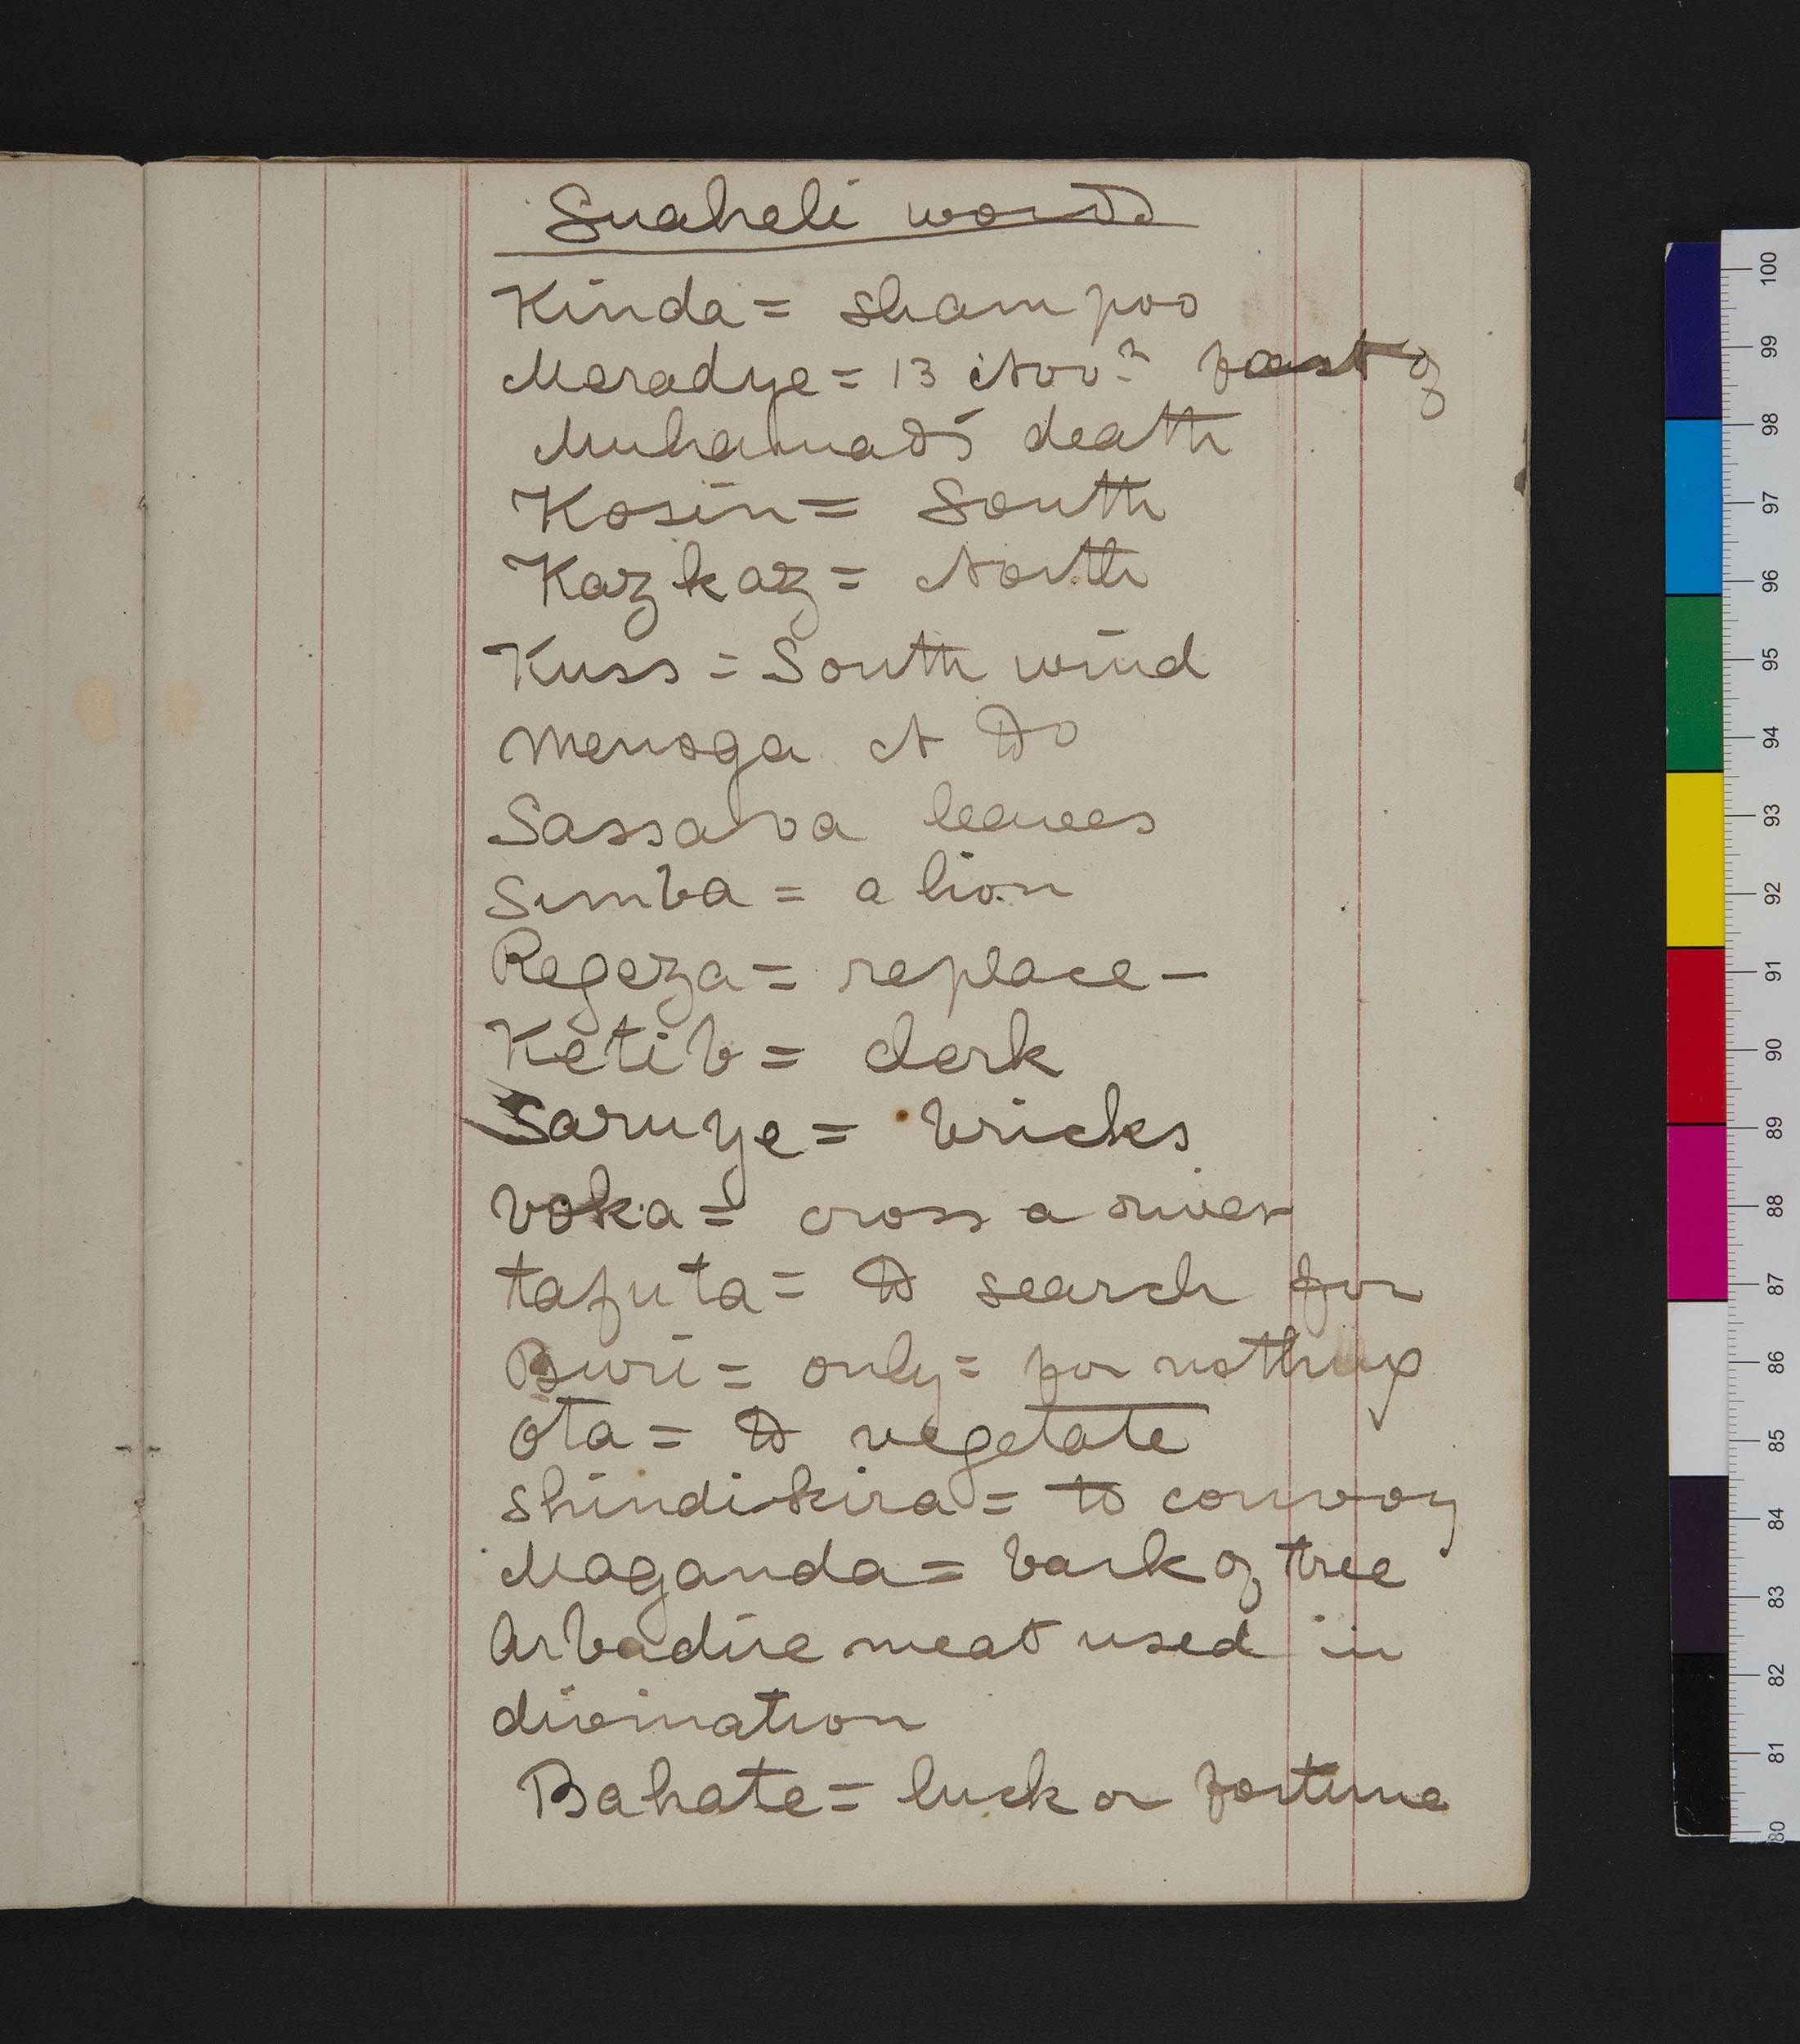 Suaheli words
Kinda = shampoo
Meradye = 13 Novr fast of
Muhamad's death
Kosin = South
Kazkaz = North
Kuss = South wind
Menoga N Do
Sassava leaves
Simba = a lion
Regeza = replace -
Ketib = clerk
Saruye = bricks
voka = cross a river
tafuta = to search for
Buri = only = for nothing
ota = to vegetate
shindikira = to convoy
Maganda = bark of tree
Arbadire meat used in
divination
Bahate = luck or fortune
100
99
98
97
96
95
94
93
92
91
90
89
88
87
86
85
84
83
82
81
80